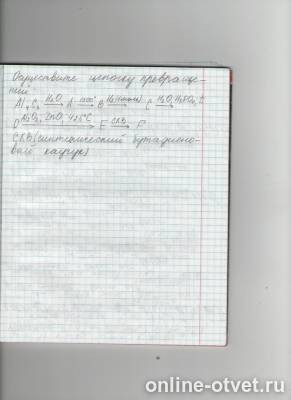 Осуществите цепочку превраще-
ний
Al₄C₃ H₂O→ A 1500°→ B H₂(катал)→ C H₂O, H₂SO₄, t
D Al₂O₃, ZnO 425°C→ E СКБ→ F
СКБ (синтетический бутадиено-
вый каучук)
online-otvet.ru